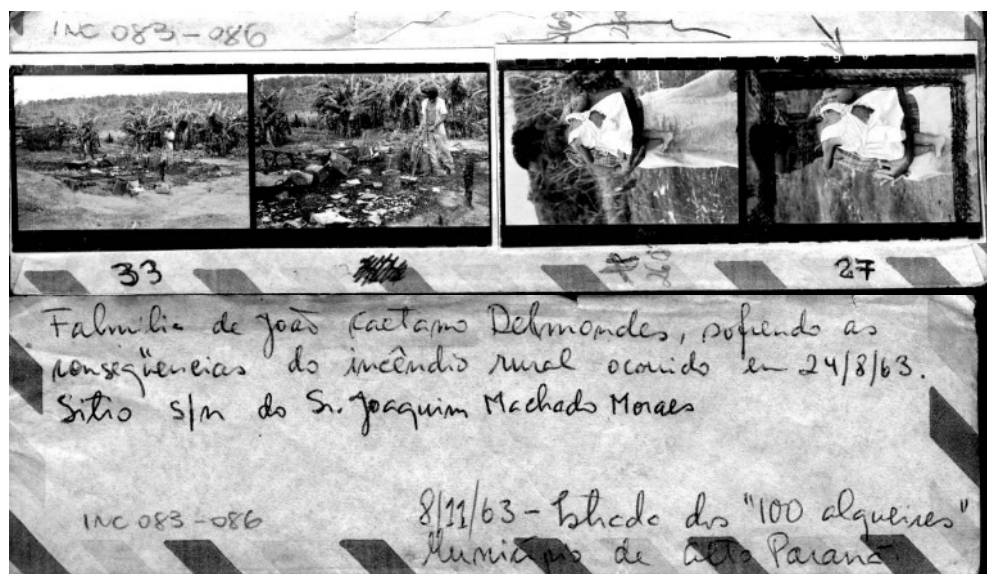 INC 083-086
33
27
Falmilia de João Caetano Delmondes, sofrendo as
conseqüencias do incêndio rural ocorrido em 24/8/63.
Sitio s/n do Sr. Joaquim Machado Moraes
INC 083-086
8/11/63 - Estrada dos "100 alqueires"
Município de Alto Paraná